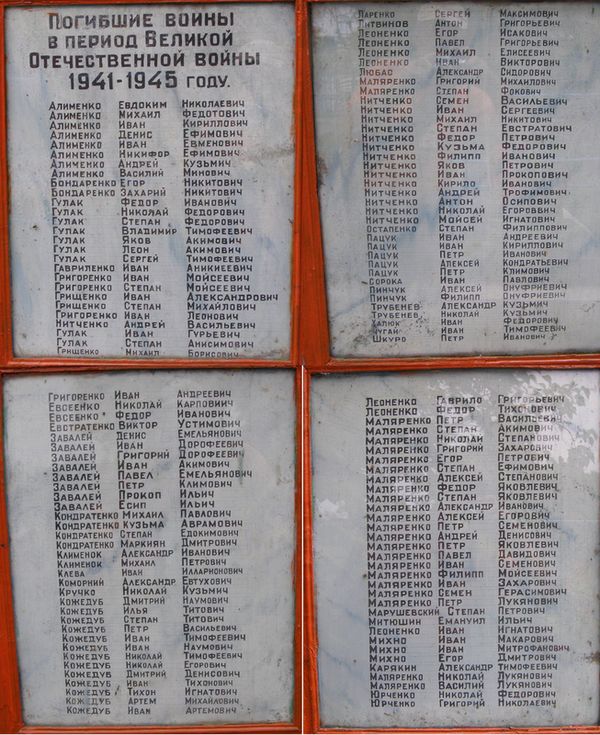 Погибшие воины
в период Великой
Отечественной войны
1941-1945 году.
Алименко Евдоким Николаевич
Алименко Михаил Федотович
Алименко Иван Кириллович
Алименко Денис Ефимович
Алименко Иван Евменович
Алименко Никифор Ефимович
Алименко Андрей Кузьмич
Алименко Василий Минович
Бондаренко Егор Никитович
Бондаренко Захарий Никитович
Гулак Федор Иванович
Гулак Николай Федорович
Гулак Степан Федорович
Гулак Владимир Тимофеевич
Гулак Яков Акимович
Гулак Леон Акимович
Гулак Сергей Тимофеевич
Гавриленко Иван Аникиевич
Григоренко Иван Моисеевич
Григоренко Степан Моисеевич
Грищенко Иван Александрович
Грищенко Степан Михайлович
Григоренко Иван Леонович
Нитченко Андрей Васильевич
Гулак Иван Гурьевич
Гулак Степан Анисимович
Грищенко Михаил Борисович
Ларенко Сергей Максимович
Литвинов Антон Григорьевич
Леоненко Егор Исакович
Леоненко Павел Григорьевич
Леоненко Михаил Елисеевич
Леоненко Иван Викторович
Любас Александр Сидорович
Маляренко Григорий Михайлович
Маляренко Степан Фокович
Нитченко Семен Васильевич
Нитченко Иван Сергеевич
Нитченко Михаил Никитович
Нитченко Степан Евстратович
Нитченко Федор Петрович
Нитченко Кузьма Федорович
Нитченко Филипп Иванович
Нитченко Яков Петрович
Нитченко Иван Прокопович
Нитченко Кирило Иванович
Нитченко Андрей Трофимович
Нитченко Антон Осипович
Нитченко Николай Егороввич
Нитченко Моисей Игнатович
Остапенко Степан Филиппович
Пацук Иван Андреевич
Пацук Иван Кириллович
Пацук Петр Иванович
Пацук Алексей Кондратьевич
Пацук Петр Климович
Сорока Иван Павлович
Пинчук Алексей Онуфриевич
Пинчук Филипп Онуфриевич
Трубенев Александр Кузьмич
Трубенев Николай Кузьмич
Халюк Иван Федорович
Чугай Иван Тимофеевич
Шкуро Петр Иванович
Григоренко Иван Андреевич
Евсеенко Николай Карпоиич
Евсеенко Федор Иванович
Евстратенко Виктор Устимович
Завалей Денис Емельянович
Завалей Иван Дорофеевич
Завалей Григорий Дорофеевич
Завалей Иван Акимович
Завалей Павел Емельянович
Завалей Петр Климович
Завалей Прокоп Ильич
Завалей Есип Ильич
Кондратенко Михаил Павлович
Кондратенко Кузьма Аврамович
Кондратенко Степан Едокимович
Кондратенко Маркиян Дмитрович
Клименок Александр Иванович
Клименок Михаил Петрович
Клева Иван Илларионович
Коморний Александр Евтухович
Кручко Николай Кузьмич
Кожедуб Дмитрий Наумович
Кожедуб Илья Титович
Кожедуб Степан Титович
Кожедуб Петр Васильевич
Кожедуб Иван Тимофеевич
Кожедуб Иван Наумович
Кожедуб Николай Тимофеевич
Кожедуб Николай Егорович
Кожедуб Дмитрий Денисович
Кожедуб Иван Тихонович
Кожедуб Тихон Игнатович
Кожедуб Артем Михайлович
Кожедуб Иван Артемович
Леоненко Гаврило Григорьевич
Леоненко Федор Тихонович
Маляренко Петр Васильевич
Маляренко Степан Акимович
Маляренко Николай Степанович
Маляренко Григорий Захарович
Маляренко Егор Петрович
Маляренко Степан Ефимович
Маляренко Алексей Степанович
Маляренко Федор Яковлевич
Маляренко Степан Яковлевич
Маляренко Александр Иванович
Маляренко Алексей Егорович
Маляренко Петр Семенович
Маляренко Андрей Денисович
Маляренко Петр Яковлевич
Маляренко Павел Давидович
Маляренко Иван Семенович
Маляренко Филипп Моисеевич
Маляренко Иван Захарович
Маляренко Семен Герасимович
Маляренко Петр Лукянович
Марушевский Степан Петрович
Митюшин Емануил Ильич
Леоненко Иван Игнатович
Михно Иван Макарович
Михно Иван Митрофанович
Михно Егор Дмитрович
Карякин Александр Тимофеевич
Маляренко Николай Лукянович
Маляренко Василий Лукянович
Юрченко Николай Федорович
Юрченко Григорий Николаевич